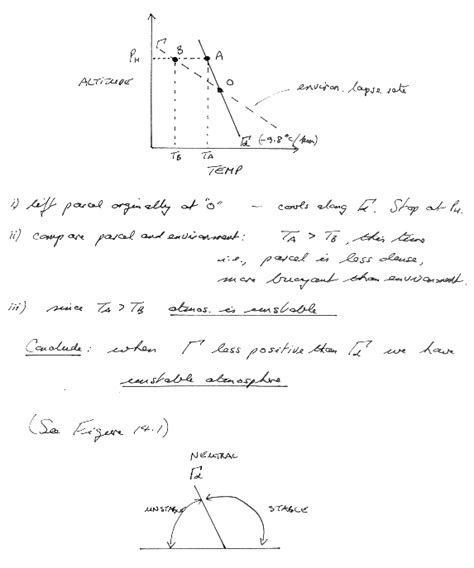 Γ
B
A
P_H
ALTITUDE
O
environ. lapse rate
Γd (-9.8°C/km)
T_B
T_A
TEMP
i) lift parcel originally at "O" — cools along Γd. Stop at P_H.
ii) compare parcel and environment: T_A > T_B, this time
i.e., parcel is less dense,
more buoyant than environment.
iii) since T_A > T_B atmos. is unstable
Conclude: when Γ less positive than Γd we have
unstable atmosphere
(See Figure 14.1)
NEUTRAL
Γd
UNSTABLE
STABLE